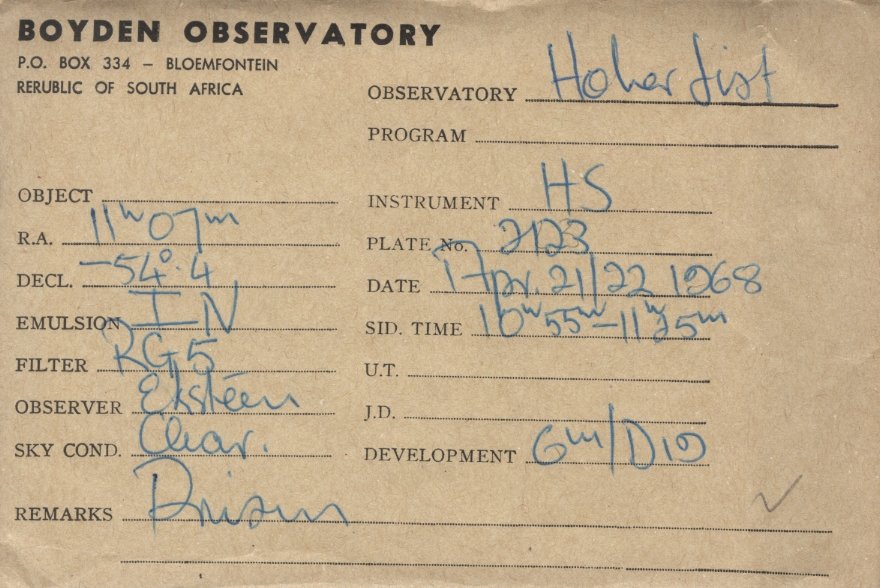 BOYDEN OBSERVATORY
P.O. BOX 334 – BLOEMFONTEIN
RERUBLIC OF SOUTH AFRICA
OBSERVATORY Hoher List
PROGRAM
OBJECT
R.A. 11h 07m
DECL. -54°.4
EMULSION I-N
FILTER RG5
OBSERVER Ekstéen
SKY COND. Clear.
REMARKS Prism
INSTRUMENT HS
PLATE No. 2123
DATE Apr. 21/22 1968
SID. TIME 10h 55m - 11h 25m
U.T.
J.D.
DEVELOPMENT 6m/D19